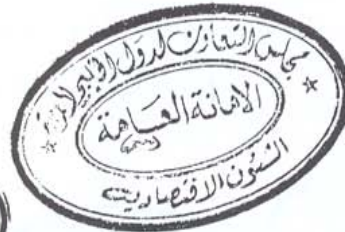 مجلس التعاون لدول الخليج العربية
الامانة العامة
الشئون الاقتصادية